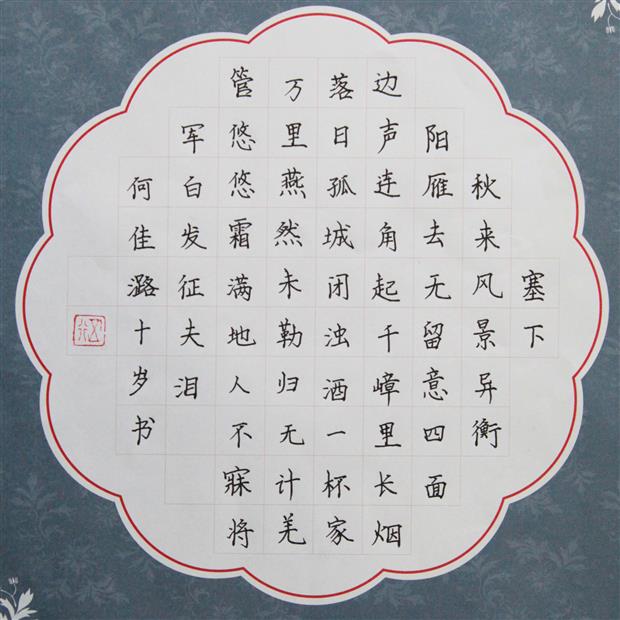 塞下
秋来风景异衡
阳雁去无留意四面
边声连角起千嶂里长烟
落日孤城闭浊酒一杯家
万里燕然未勒归无计羌
管悠悠霜满地人不寐将
军白发征夫泪
何佳潞十岁书